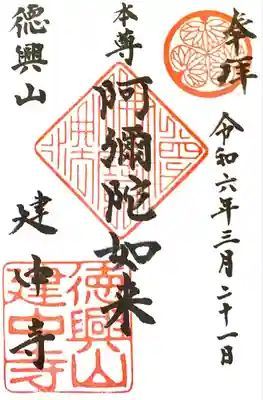 奉拝
令和六年三月二十一日
本尊
阿彌陀如来
徳興山
建中寺
徳興山
建中寺